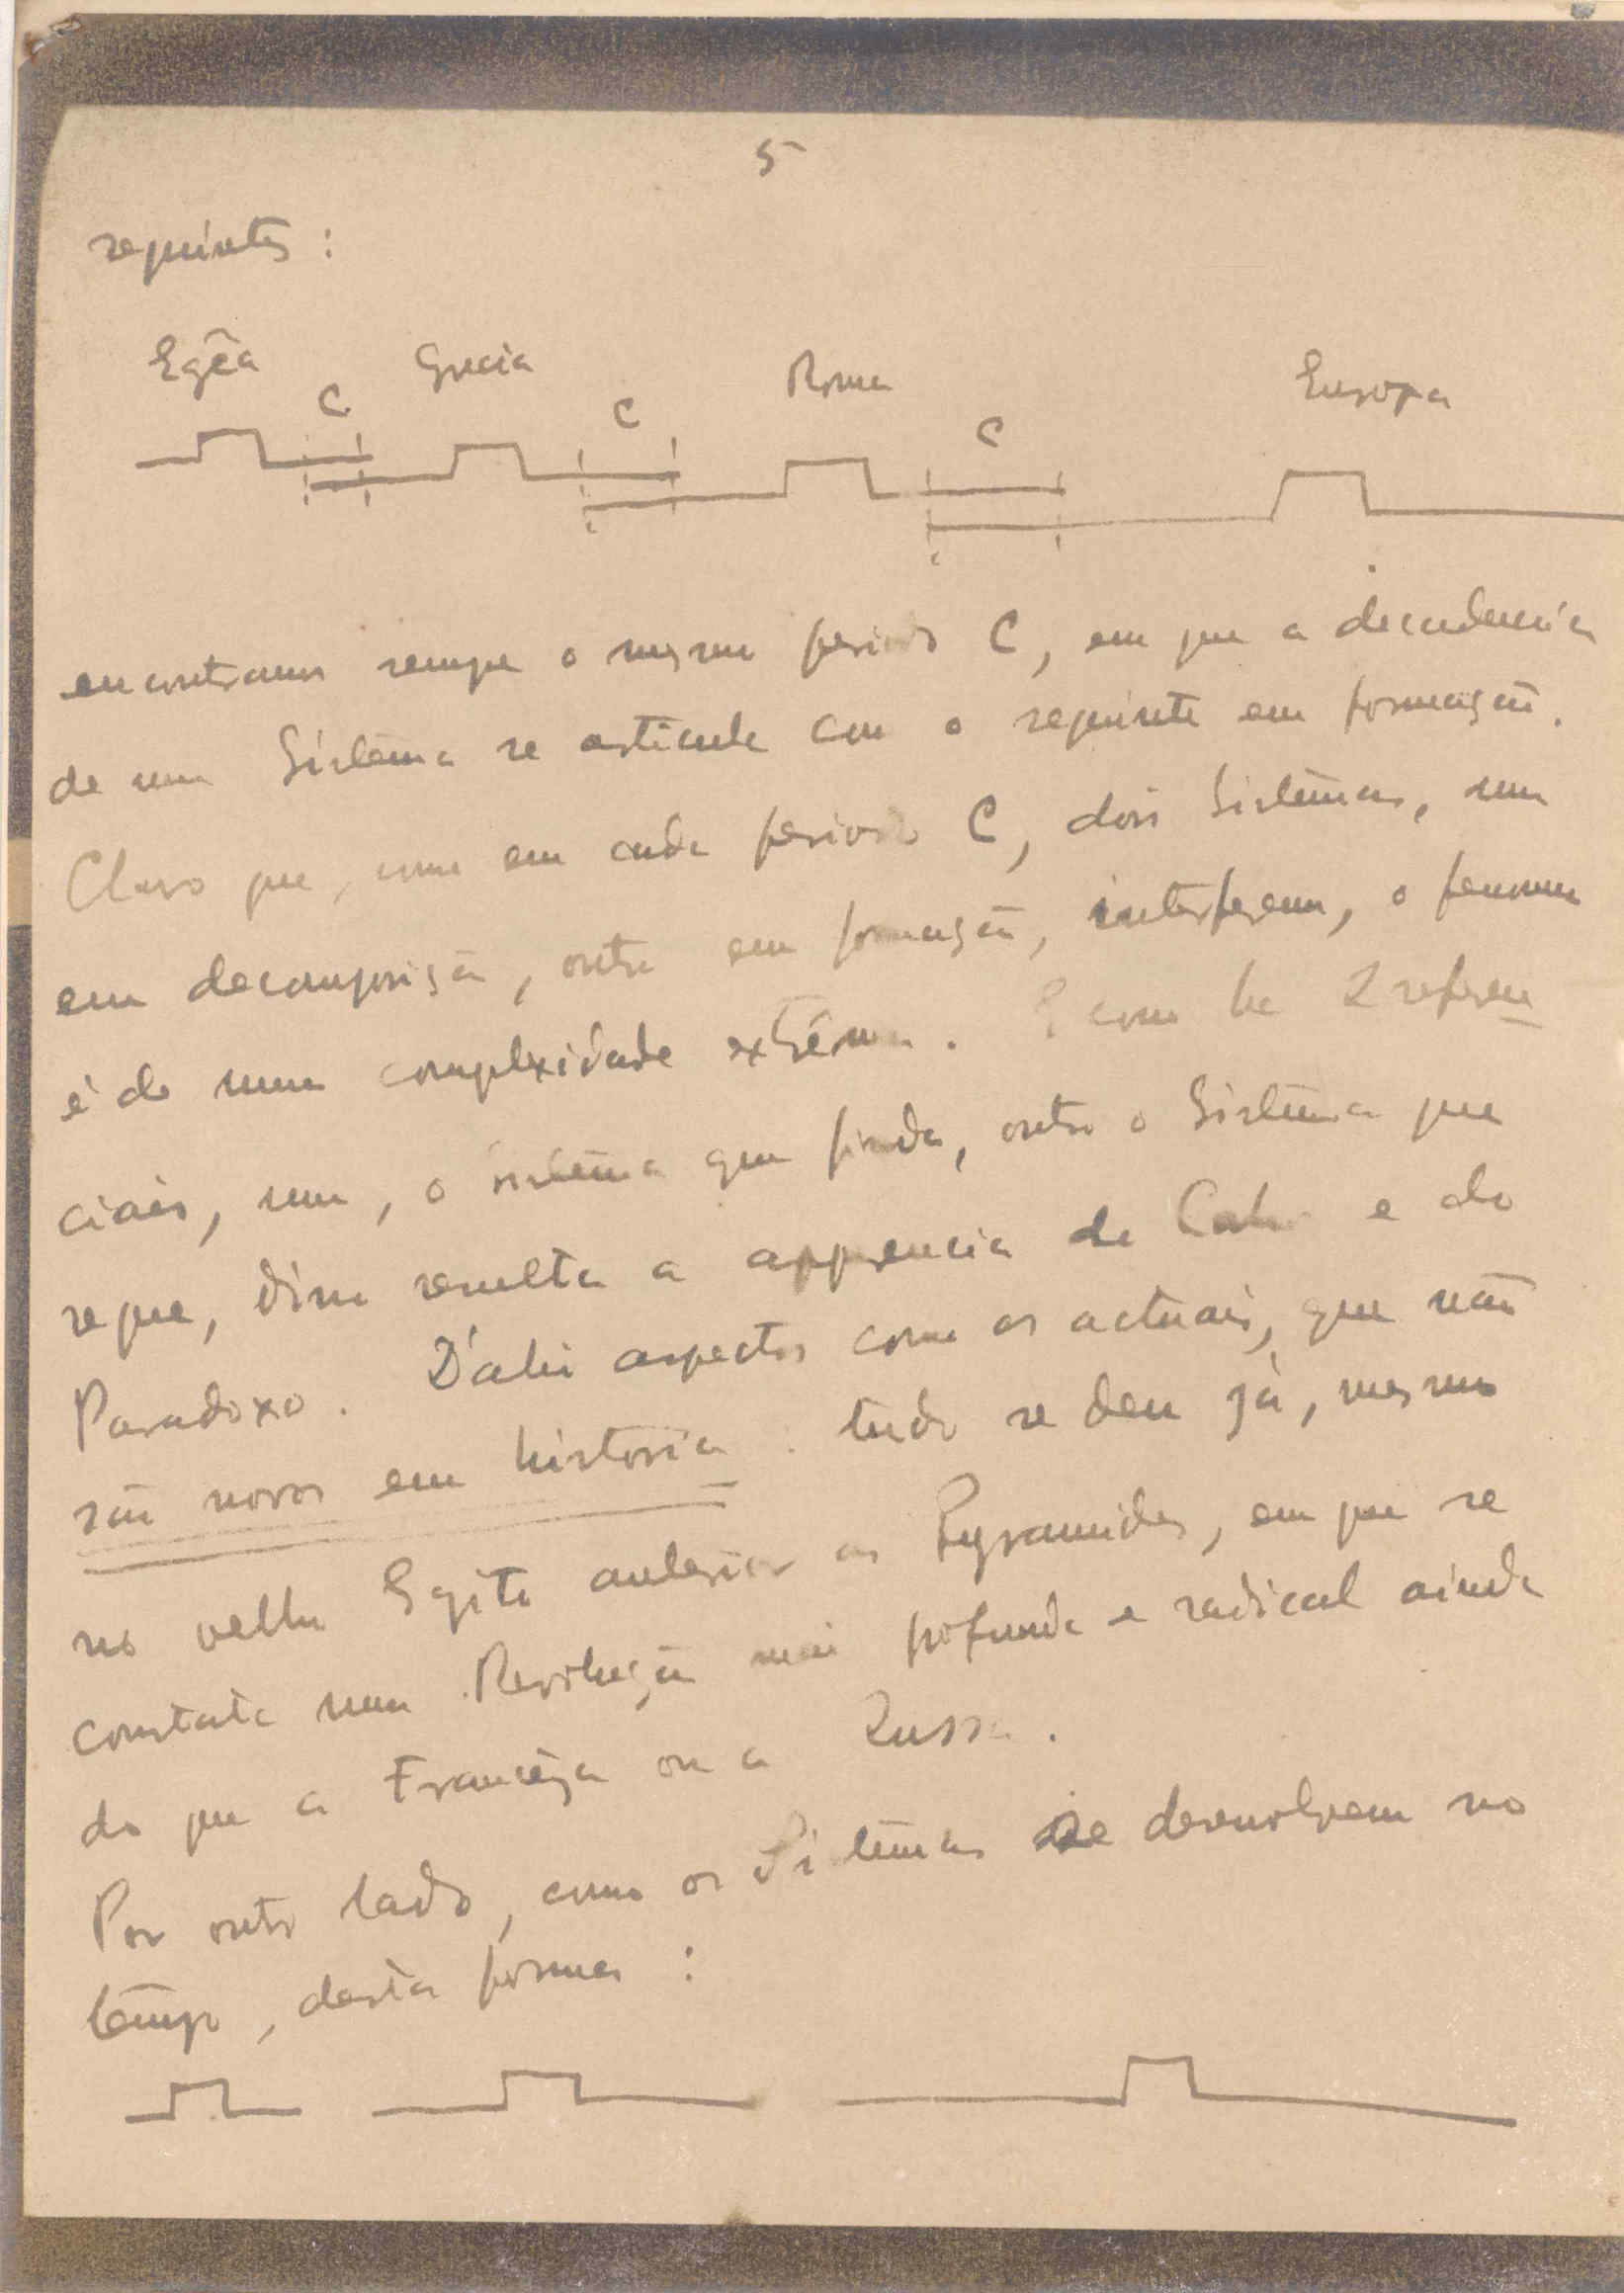 5
seguintes :
Egêa C Grecia C Roma C Europa
encontramos sempre o mesmo periodo C, em que a decadencia
de um Sistêma se articula com o seguinte em formação.
Claro que, como em cada periodo C, dois Sistêmas, um
em decomposição, outro em formação, interferem, o fenomeno
é de uma complexidade extrêma. E como ha 2 referen
ciais, um, o sistêma que finda, outro o Sistêma que
segue, disso resulta a apparencia de Cahos e do
Paradoxo. D'ahi aspectos como os actuais, que não
são novos em historia : tudo se deu já, mesmo
no velho Egito anterior as Pyramides, em que se
constata uma Revolução mais profunda e radical ainda
do que a Francêza ou a Russa.
Por outro lado, como os Sistêmas se desenvolvem no
têmpo, desta forma :